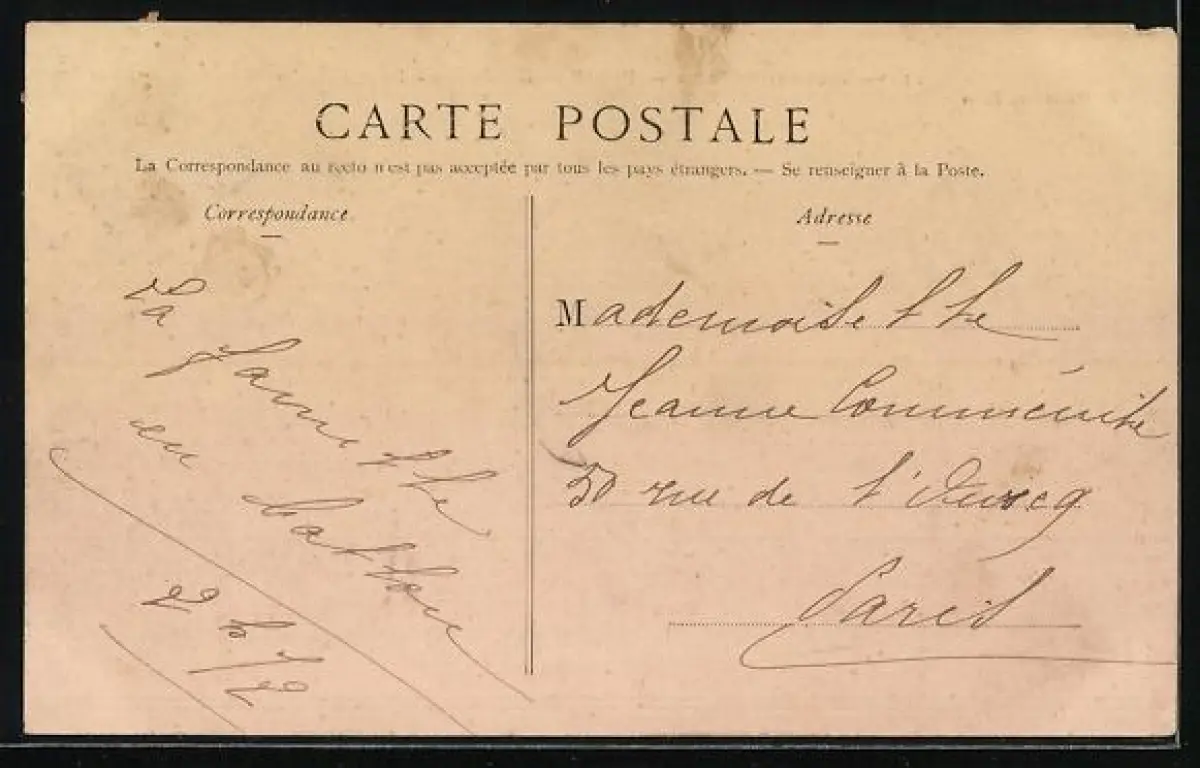 CARTE POSTALE
La Correspondance au recto n'est pas acceptée par tous les pays étrangers. — Se renseigner à la Poste.
Correspondance
La famille
en
Adresse
Mademoiselle
Jeanne
50 rue de l'Ourcq
Paris